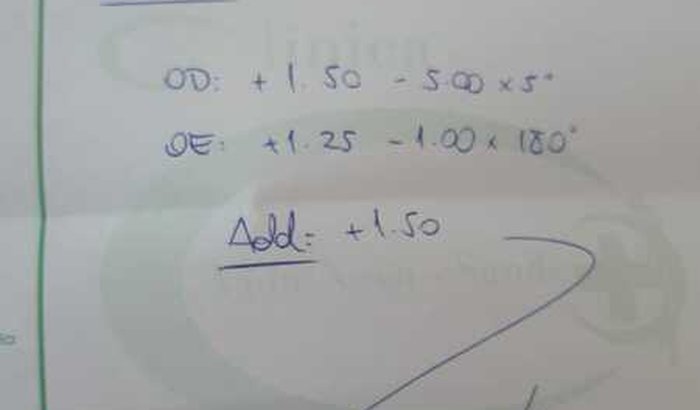 OD: +1.50 -5.00 x 5°
OE: +1.25 -1.00 x 180°
Add: +1.50